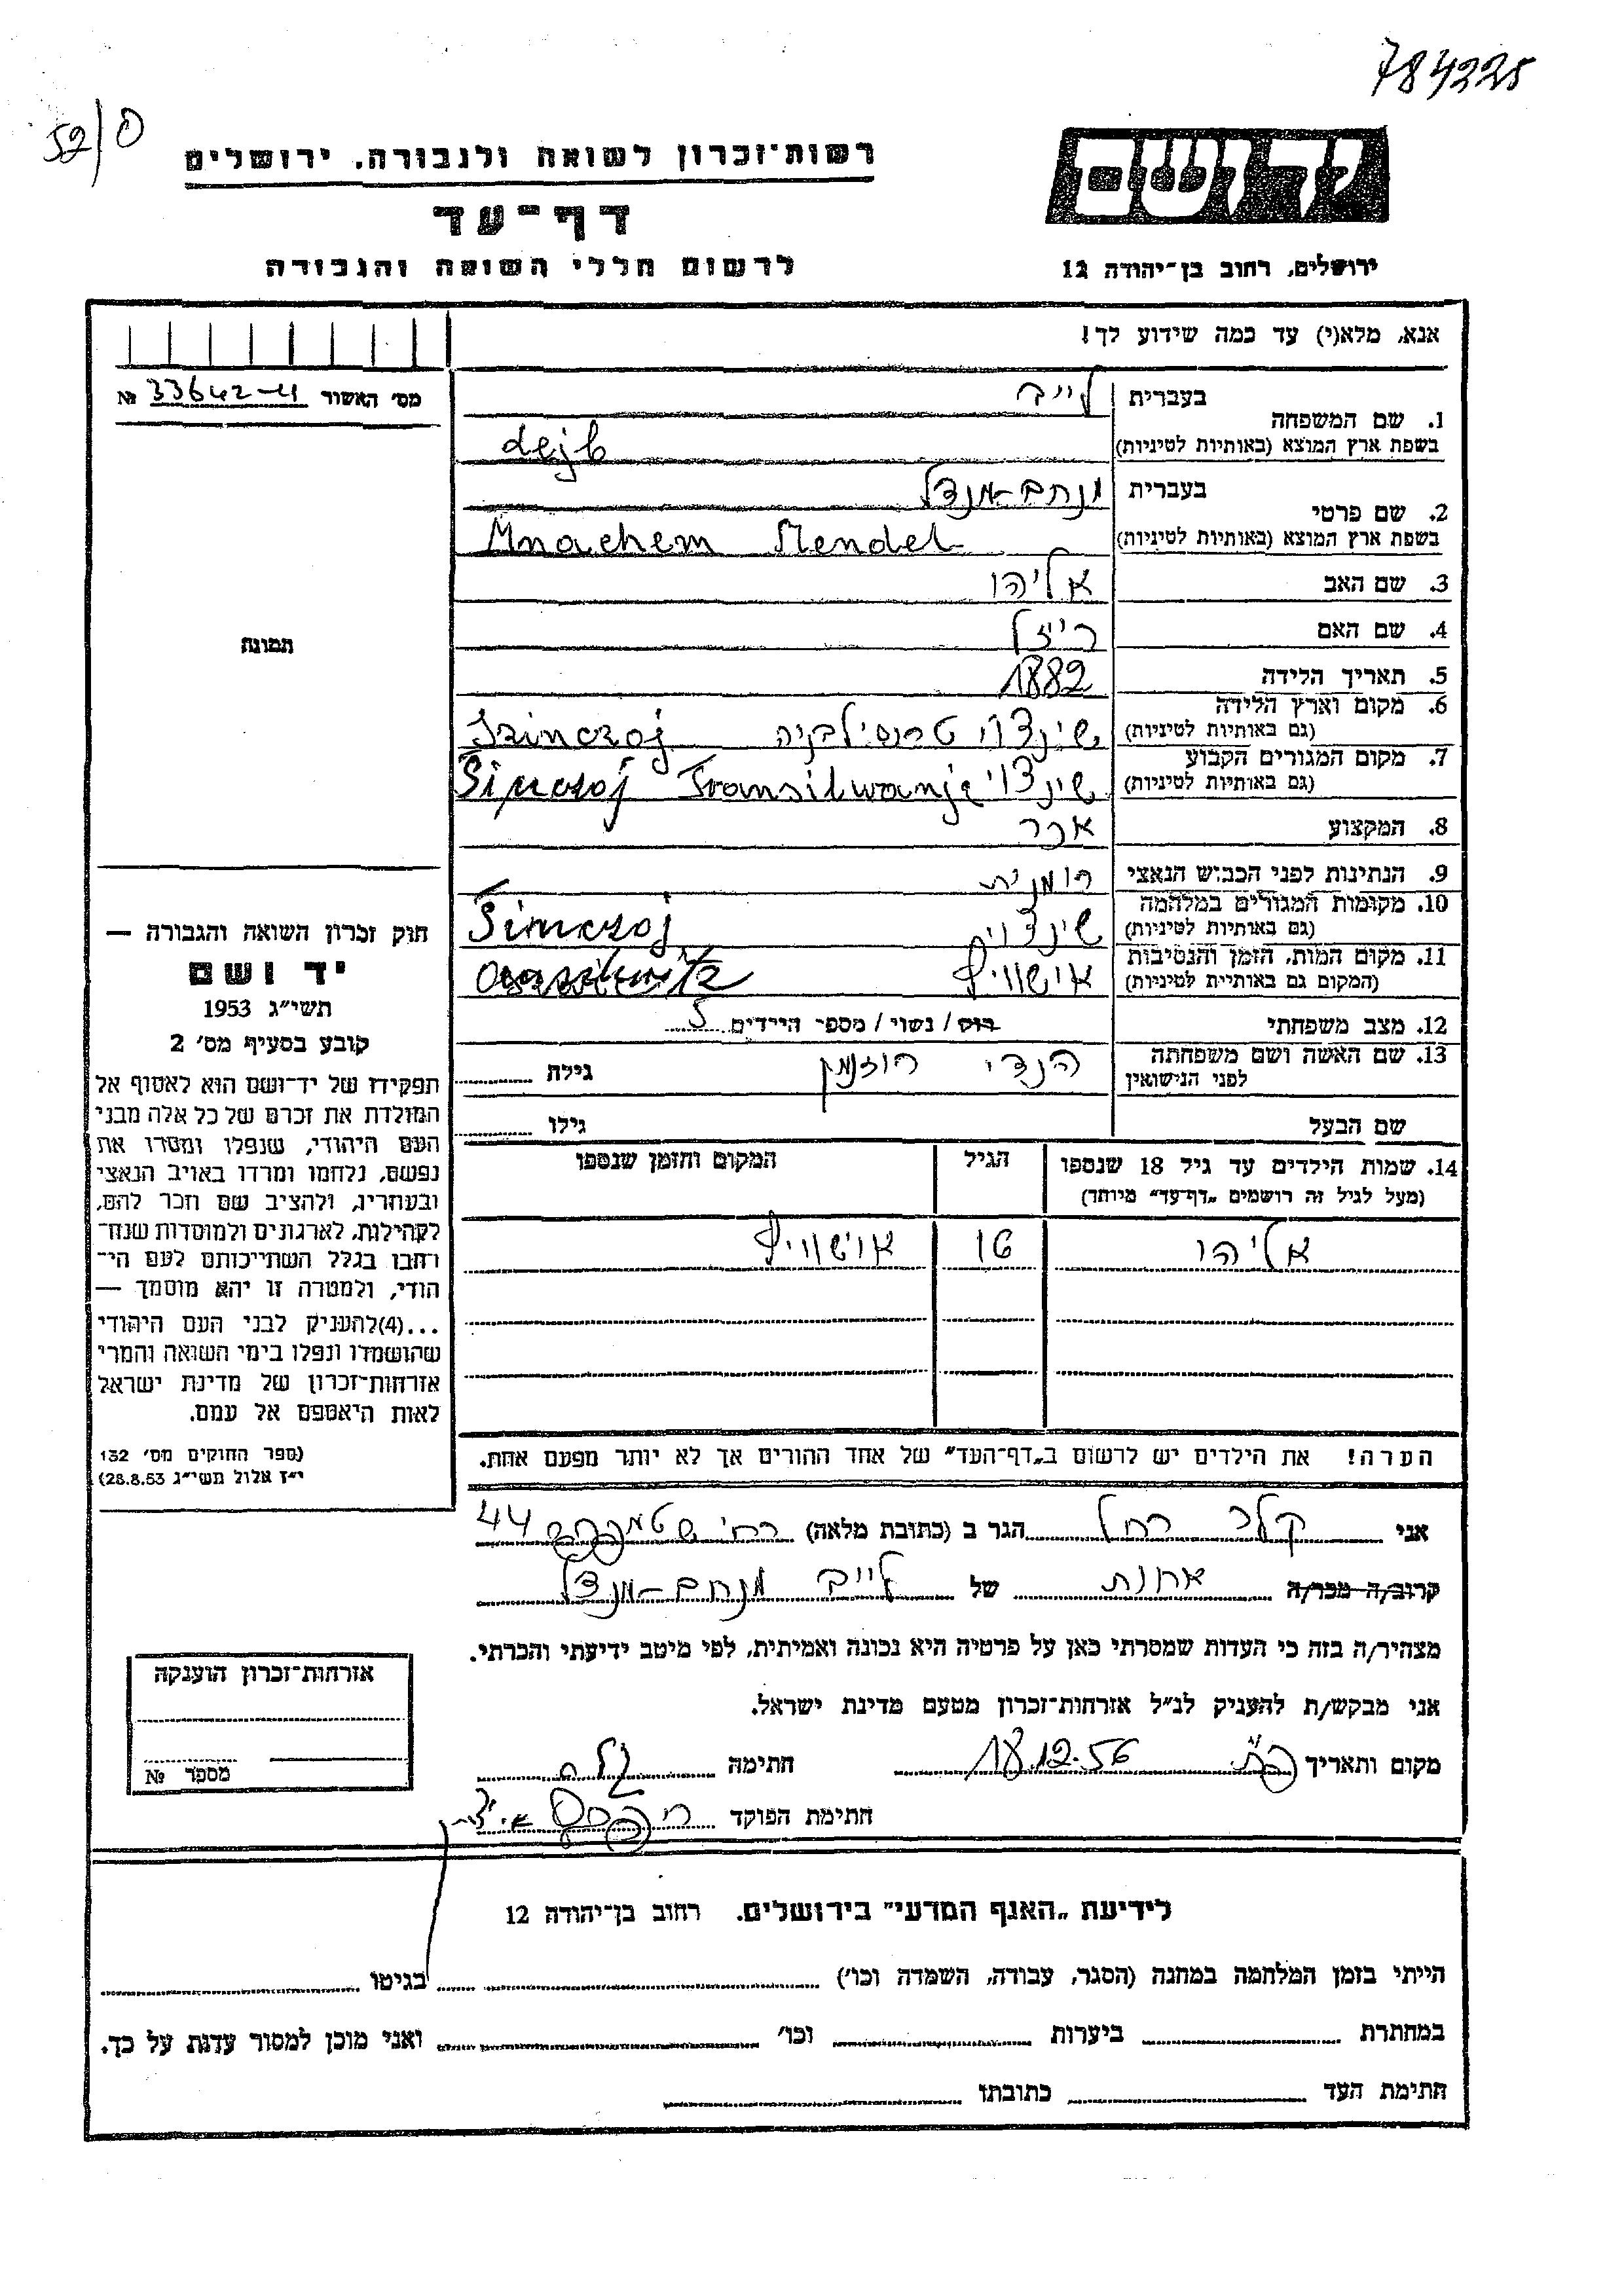 784225
52/0
יד ושם
רשות־זכרון לשואה ולגבורה, ירושלים
דף־עד
לרשום חללי השואה והגבורה
ירושלים, רחוב בן־יהודה 12
אנא, מלא(י) עד כמה שידוע לך!
מס׳ האשור 33642-4 №
תמונה
1. שם המשפחה
בעברית לייב
בשפת ארץ המוצא (באותיות לטיניות) Lejb
2. שם פרטי
בעברית מנחם-מנדל
בשפת ארץ המוצא (באותיות לטיניות) Mnachem Mendel
3. שם האב אליהו
4. שם האם רייזל
5. תאריך הלידה 1882
6. מקום וארץ הלידה
(גם באותיות לטיניות) שינצוי טרנסילבניה Szinczoj
7. מקום המגורים הקבוע
(גם באותיות לטיניות) שינצוי Sinczoj Transilwanje
8. המקצוע אכר
9. הנתינות לפני הכבוש הנאצי רומנית
10. מקומות המגורים במלחמה
(גם באותיות לטיניות) שינצוי Simczoj
11. מקום המות, הזמן והנסיבות
(המקום גם באותיות לטיניות) אושוויץ
12. מצב משפחתי רוק/ נשוי/ מספר הילדים 5
13. שם האשה ושם משפחתה
לפני הנישואין הנדי רוזנמן גילה
שם הבעל גילו
14. שמות הילדים עד גיל 18 שנספו הגיל המקום והזמן שנספו
(מעל לגיל זה רושמים „דף־עד״ מיוחד)
אליהו 16 אושוויץ
הערה! את הילדים יש לרשום ב„דף־העד״ של אחד ההורים אך לא יותר מפעם אחת.
חוק זכרון השואה והגבורה —
יד ושם
תשי״ג 1953
קובע בסעיף מס׳ 2
תפקידו של יד־ושם הוא לאסוף אל
המולדת את זכרם של כל אלה מבני
העם היהודי, שנפלו ומסרו את
נפשם, נלחמו ומרדו באויב הנאצי
ובעוזריו, ולהציב שם וזכר להם,
לקהילות, לארגונים ולמוסדות שנח־
רבו בגלל השתייכותם לעם הי־
הודי, ולמטרה זו יהא מוסמך —
...(4)להעניק לבני העם היהודי
שהושמדו ונפלו בימי השואה והמרי
אזרחות־זכרון של מדינת ישראל
לאות היאספם אל עמם.
(ספר החוקים מס׳ 132
י״ז אלול תשי״ג 28.8.53)
אני קלר רחל הגר ב (כתובת מלאה) רח׳ 44
קרוב/ה מכר/ה אחות של לייב מנחם-מנדל
מצהיר/ה בזה כי העדות שמסרתי כאן על פרטיה היא נכונה ואמיתית, לפי מיטב ידיעתי והכרתי.
אני מבקש/ת להעניק לנ״ל אזרחות־זכרון מטעם מדינת ישראל.
מקום ותאריך 18.12.56 חתימה
חתימת הפוקד
אזרחות־זכרון הוענקה
מספר №
לידיעת „האגף המדעי״ בירושלים. רחוב בן־יהודה 12
הייתי בזמן המלחמה במחנה (הסגר, עבודה, השמדה וכו׳) בגיטו
במחתרת ביערות וכו׳ ואני מוכן למסור עדות על כך.
חתימת העד כתובתו